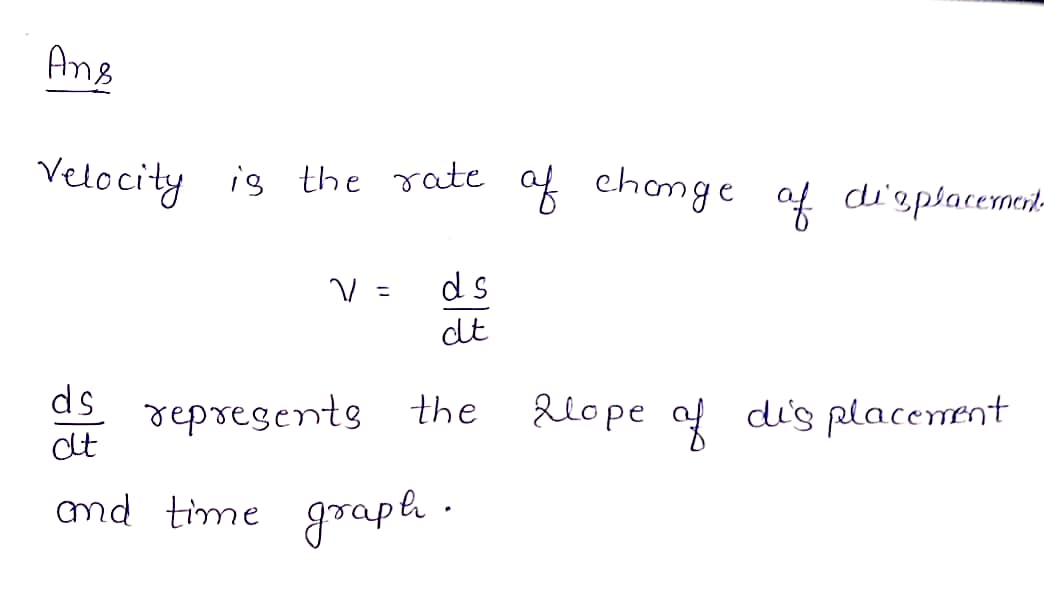 Ans
Velocity is the rate of change of displacement.
V = ds/dt
ds/dt represents the slope of displacement
and time graph.